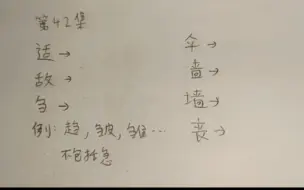 第42集
适→
敌→
刍→
例:趋,皱,雏…
不包括急
伞→
啬→
墙→
丧→